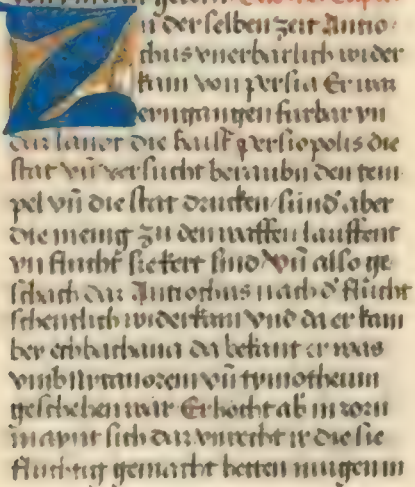 Zu der selben zeit Antio
chus vnerbarlich wider
kam von persia Er was
eingangen furbar vn
die haist persiopolis die
stat vn̄ versucht berauben den tem
pel vn̄ die stat drucken sund aber
die menig zu den waffen lauffent
vn flucht sie kert sind vn̄ also ge
schach daz Antiochus nach d' flucht
schentlich wider kam vnd da er kam
ber echbathana da bekant er was
vmb nycanorem vn̄ tymotheum
geschehen war Er hocht ab in zorn
sich daz vnrecht die sie
fluchtig gemacht hetten mugen in